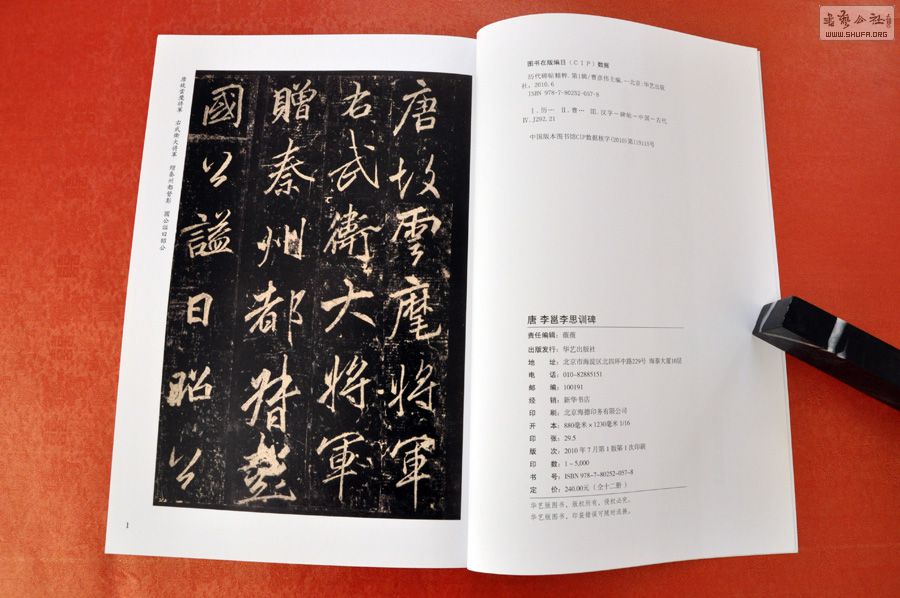 唐故雲麾將軍
右武衛大將軍
贈秦州都督彭
國公謚曰昭公
唐故雲麾將軍 右武衛大將軍 贈秦州都督彭 國公謚曰昭公
1
图书在版编目（CIP）数据
历代碑帖精粹．第1辑/曹彦伟主编．--北京：华艺出版
社，2010.6
ISBN 978-7-80252-057-8
Ⅰ.历… Ⅱ.曹… Ⅲ.汉字－碑帖－中国－古代
Ⅳ.J292.21
中国版本图书馆CIP数据核字(2010)第119115号
唐 李邕李思训碑
责任编辑：薇薇
出版发行：华艺出版社
地 址：北京市海淀区北四环中路229号 海泰大厦10层
电 话：010-82885151
邮 编：100191
经 销：新华书店
印 刷：北京海德印务有限公司
开 本：880毫米×1230毫米 1/16
印 张：29.5
版 次：2010年7月第1版第1次印刷
印 数：1-5,000
书 号：ISBN 978-7-80252-057-8
定 价：240.00元（全十二册）
华艺版图书，版权所有，侵权必究。
华艺版图书，印装错误可随时退换。
WWW.SHUFA.ORG